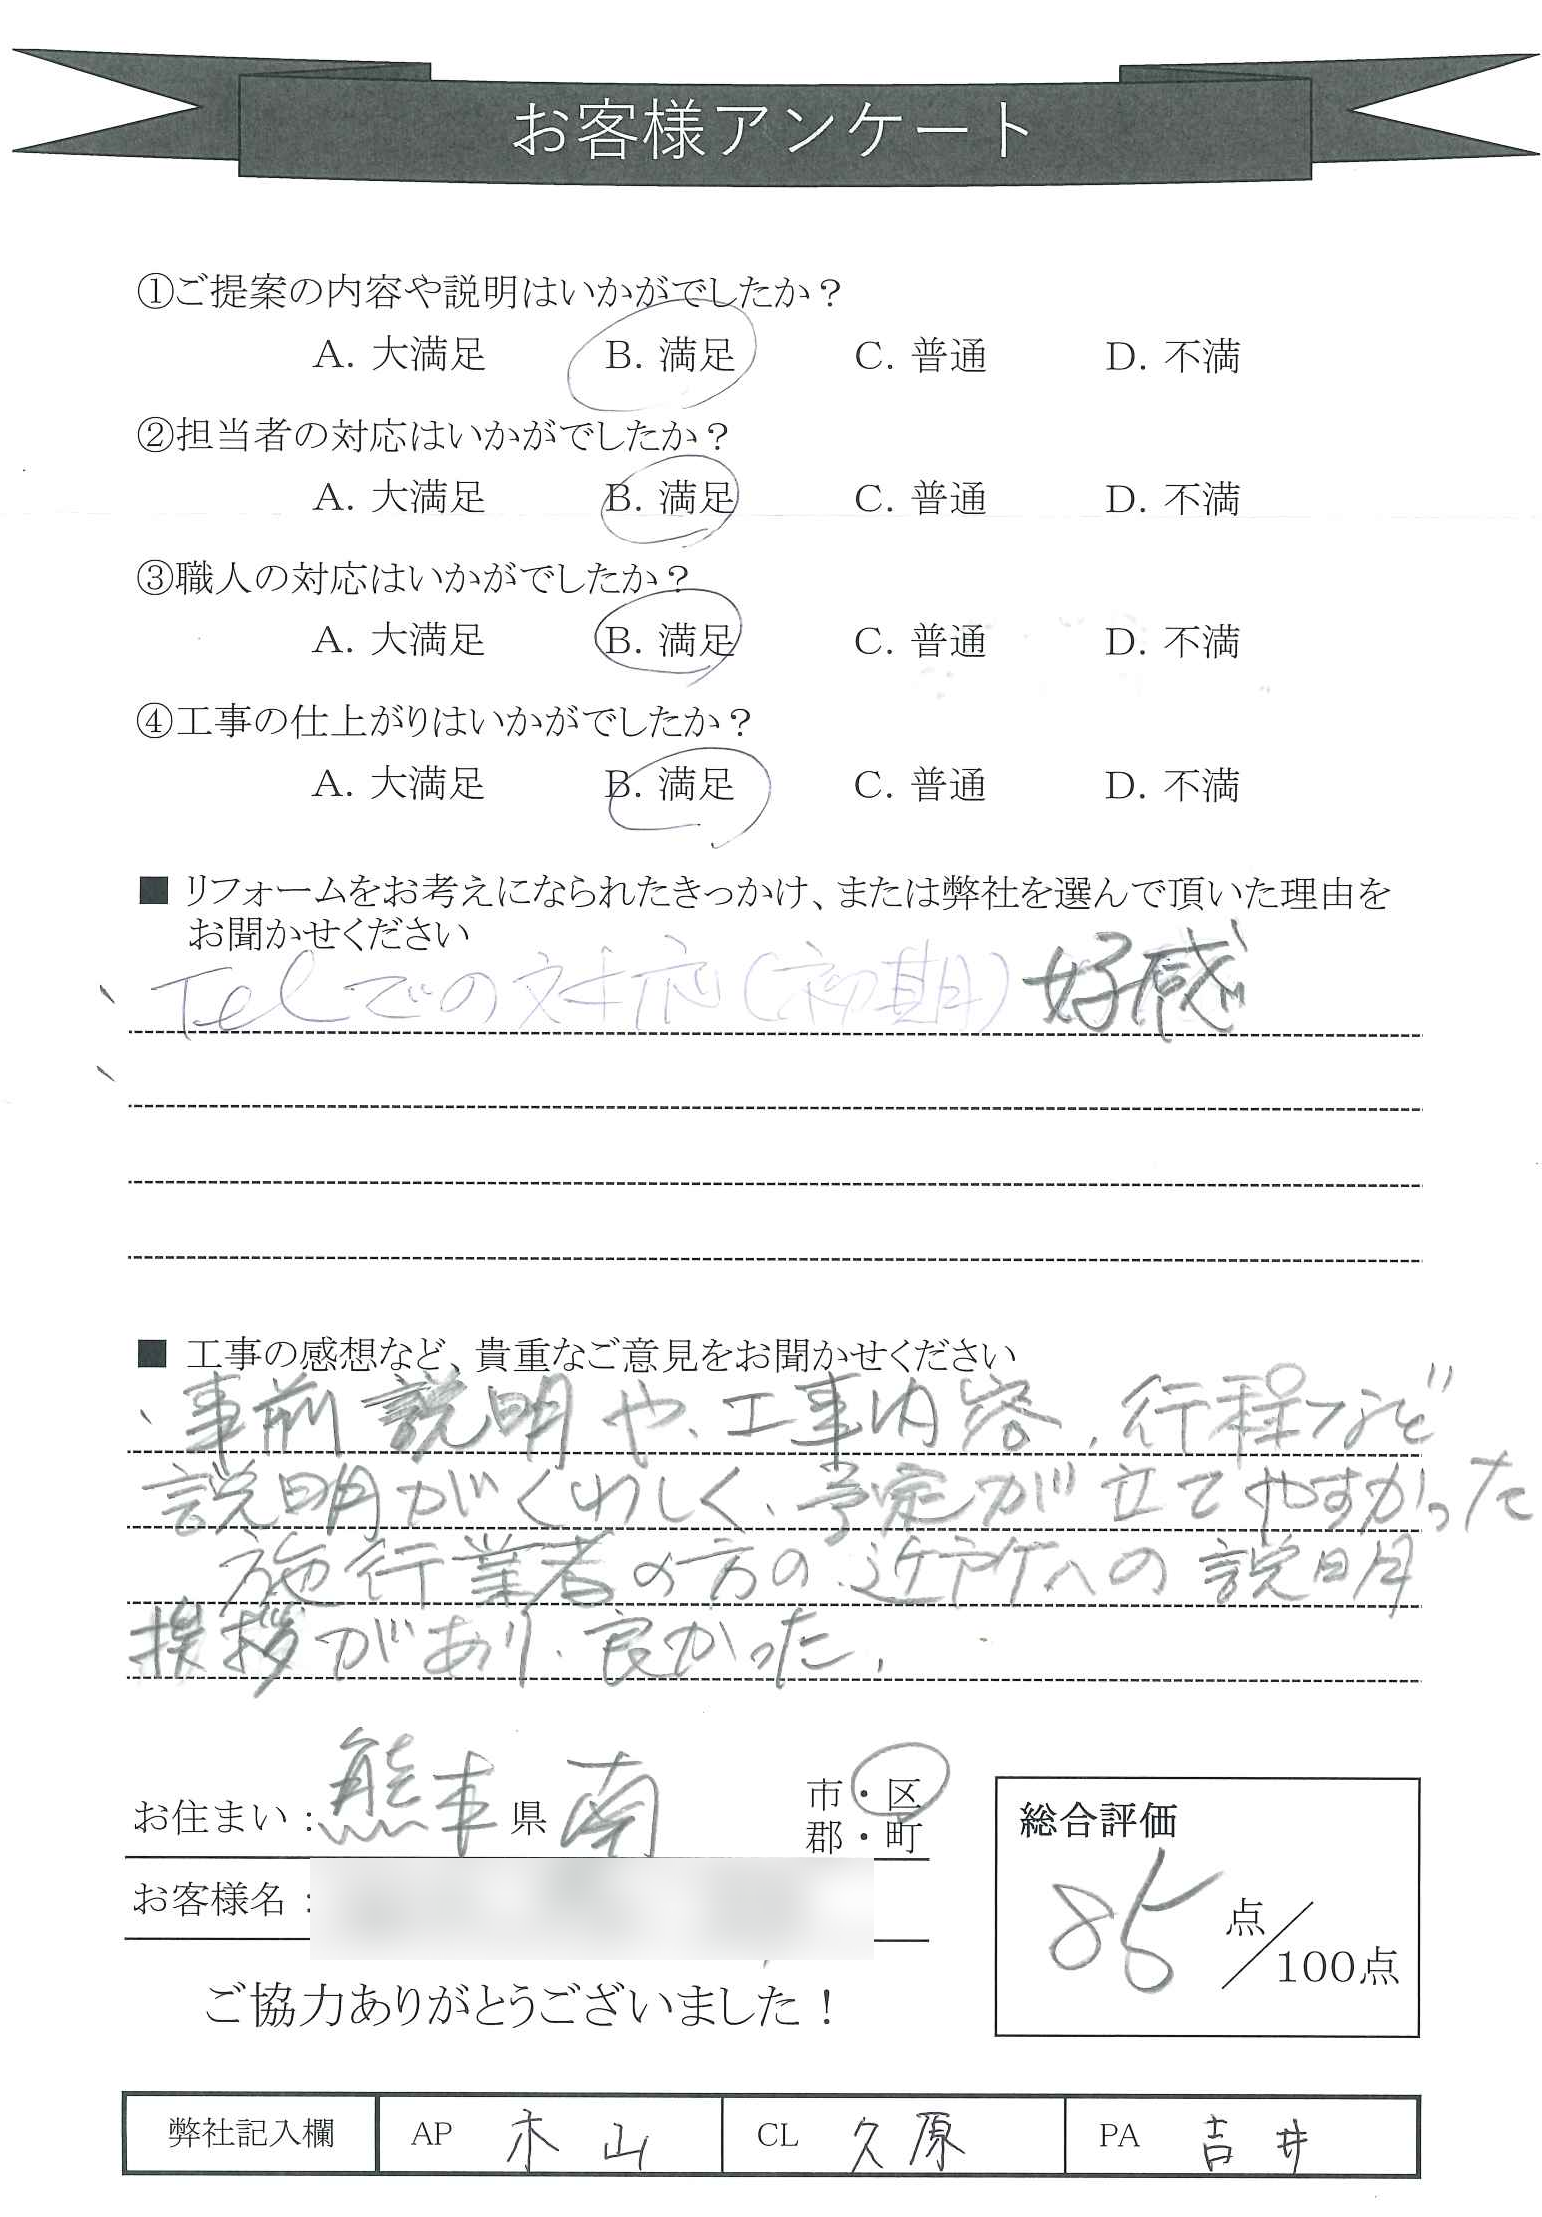 お客様アンケート
①ご提案の内容や説明はいかがでしたか？
A. 大満足 B. 満足 C. 普通 D. 不満
②担当者の対応はいかがでしたか？
A. 大満足 B. 満足 C. 普通 D. 不満
③職人の対応はいかがでしたか？
A. 大満足 B. 満足 C. 普通 D. 不満
④工事の仕上がりはいかがでしたか？
A. 大満足 B. 満足 C. 普通 D. 不満
■ リフォームをお考えになられたきっかけ、または弊社を選んで頂いた理由を
お聞かせください
、Telでの対応(初期)好感
■ 工事の感想など、貴重なご意見をお聞かせください
、事前説明や、工事内容、行程など
説明がくわしく、予定が立てやすかった
施行業者の方の近所への説明
挨拶があり、良かった、
お住まい：熊本県 南 市・区
郡・町
お客様名：
総合評価
85点／100点
ご協力ありがとうございました！
弊社記入欄 AP 木山 CL 久原 PA 吉井